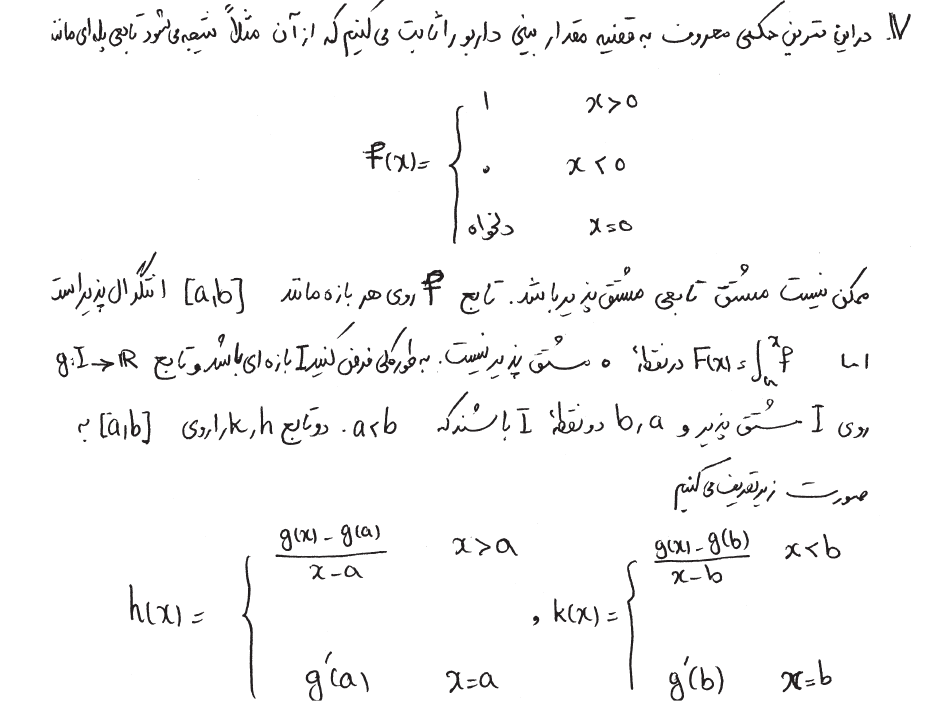 ۱۷. در این تمرین حکمی معروف به قضیه مقدار میانی داربو را ثابت می کنیم که از آن مثلاً نتیجه می شود تابعی پله ای مانند
f(x)= { ۱ x>0
۰ x<0
دلخواه x=0
ممکن نیست مشتق تابعی مشتق پذیر باشد. تابع f روی هر بازه مانند [a,b] انتگرال پذیر است
اما F(x)=∫ₐˣ f در نقطهٔ ۰ مشتق پذیر نیست. به طور کلی فرض کنید I بازه ای باشد و تابع g:I→ℝ
روی I مشتق پذیر و b,a دو نقطهٔ I باشند که a<b. دو تابع k,h را روی [a,b] به
صورت زیر تعریف می کنیم
h(x)= { (g(x)-g(a))/(x-a) x>a , k(x)= { (g(x)-g(b))/(x-b) x<b
g′(a) x=a g′(b) x=b